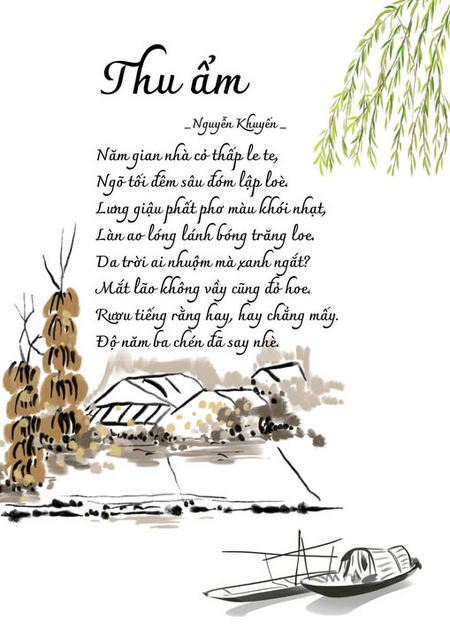 Thu ẩm
_Nguyễn Khuyến_
Năm gian nhà cỏ thấp le te,
Ngõ tối đêm sâu đóm lập loè.
Lưng giậu phất phơ màu khói nhạt,
Làn ao lóng lánh bóng trăng loe.
Da trời ai nhuộm mà xanh ngắt?
Mắt lão không vầy cũng đỏ hoe.
Rượu tiếng rằng hay, hay chẳng mấy.
Độ năm ba chén đã say nhè.